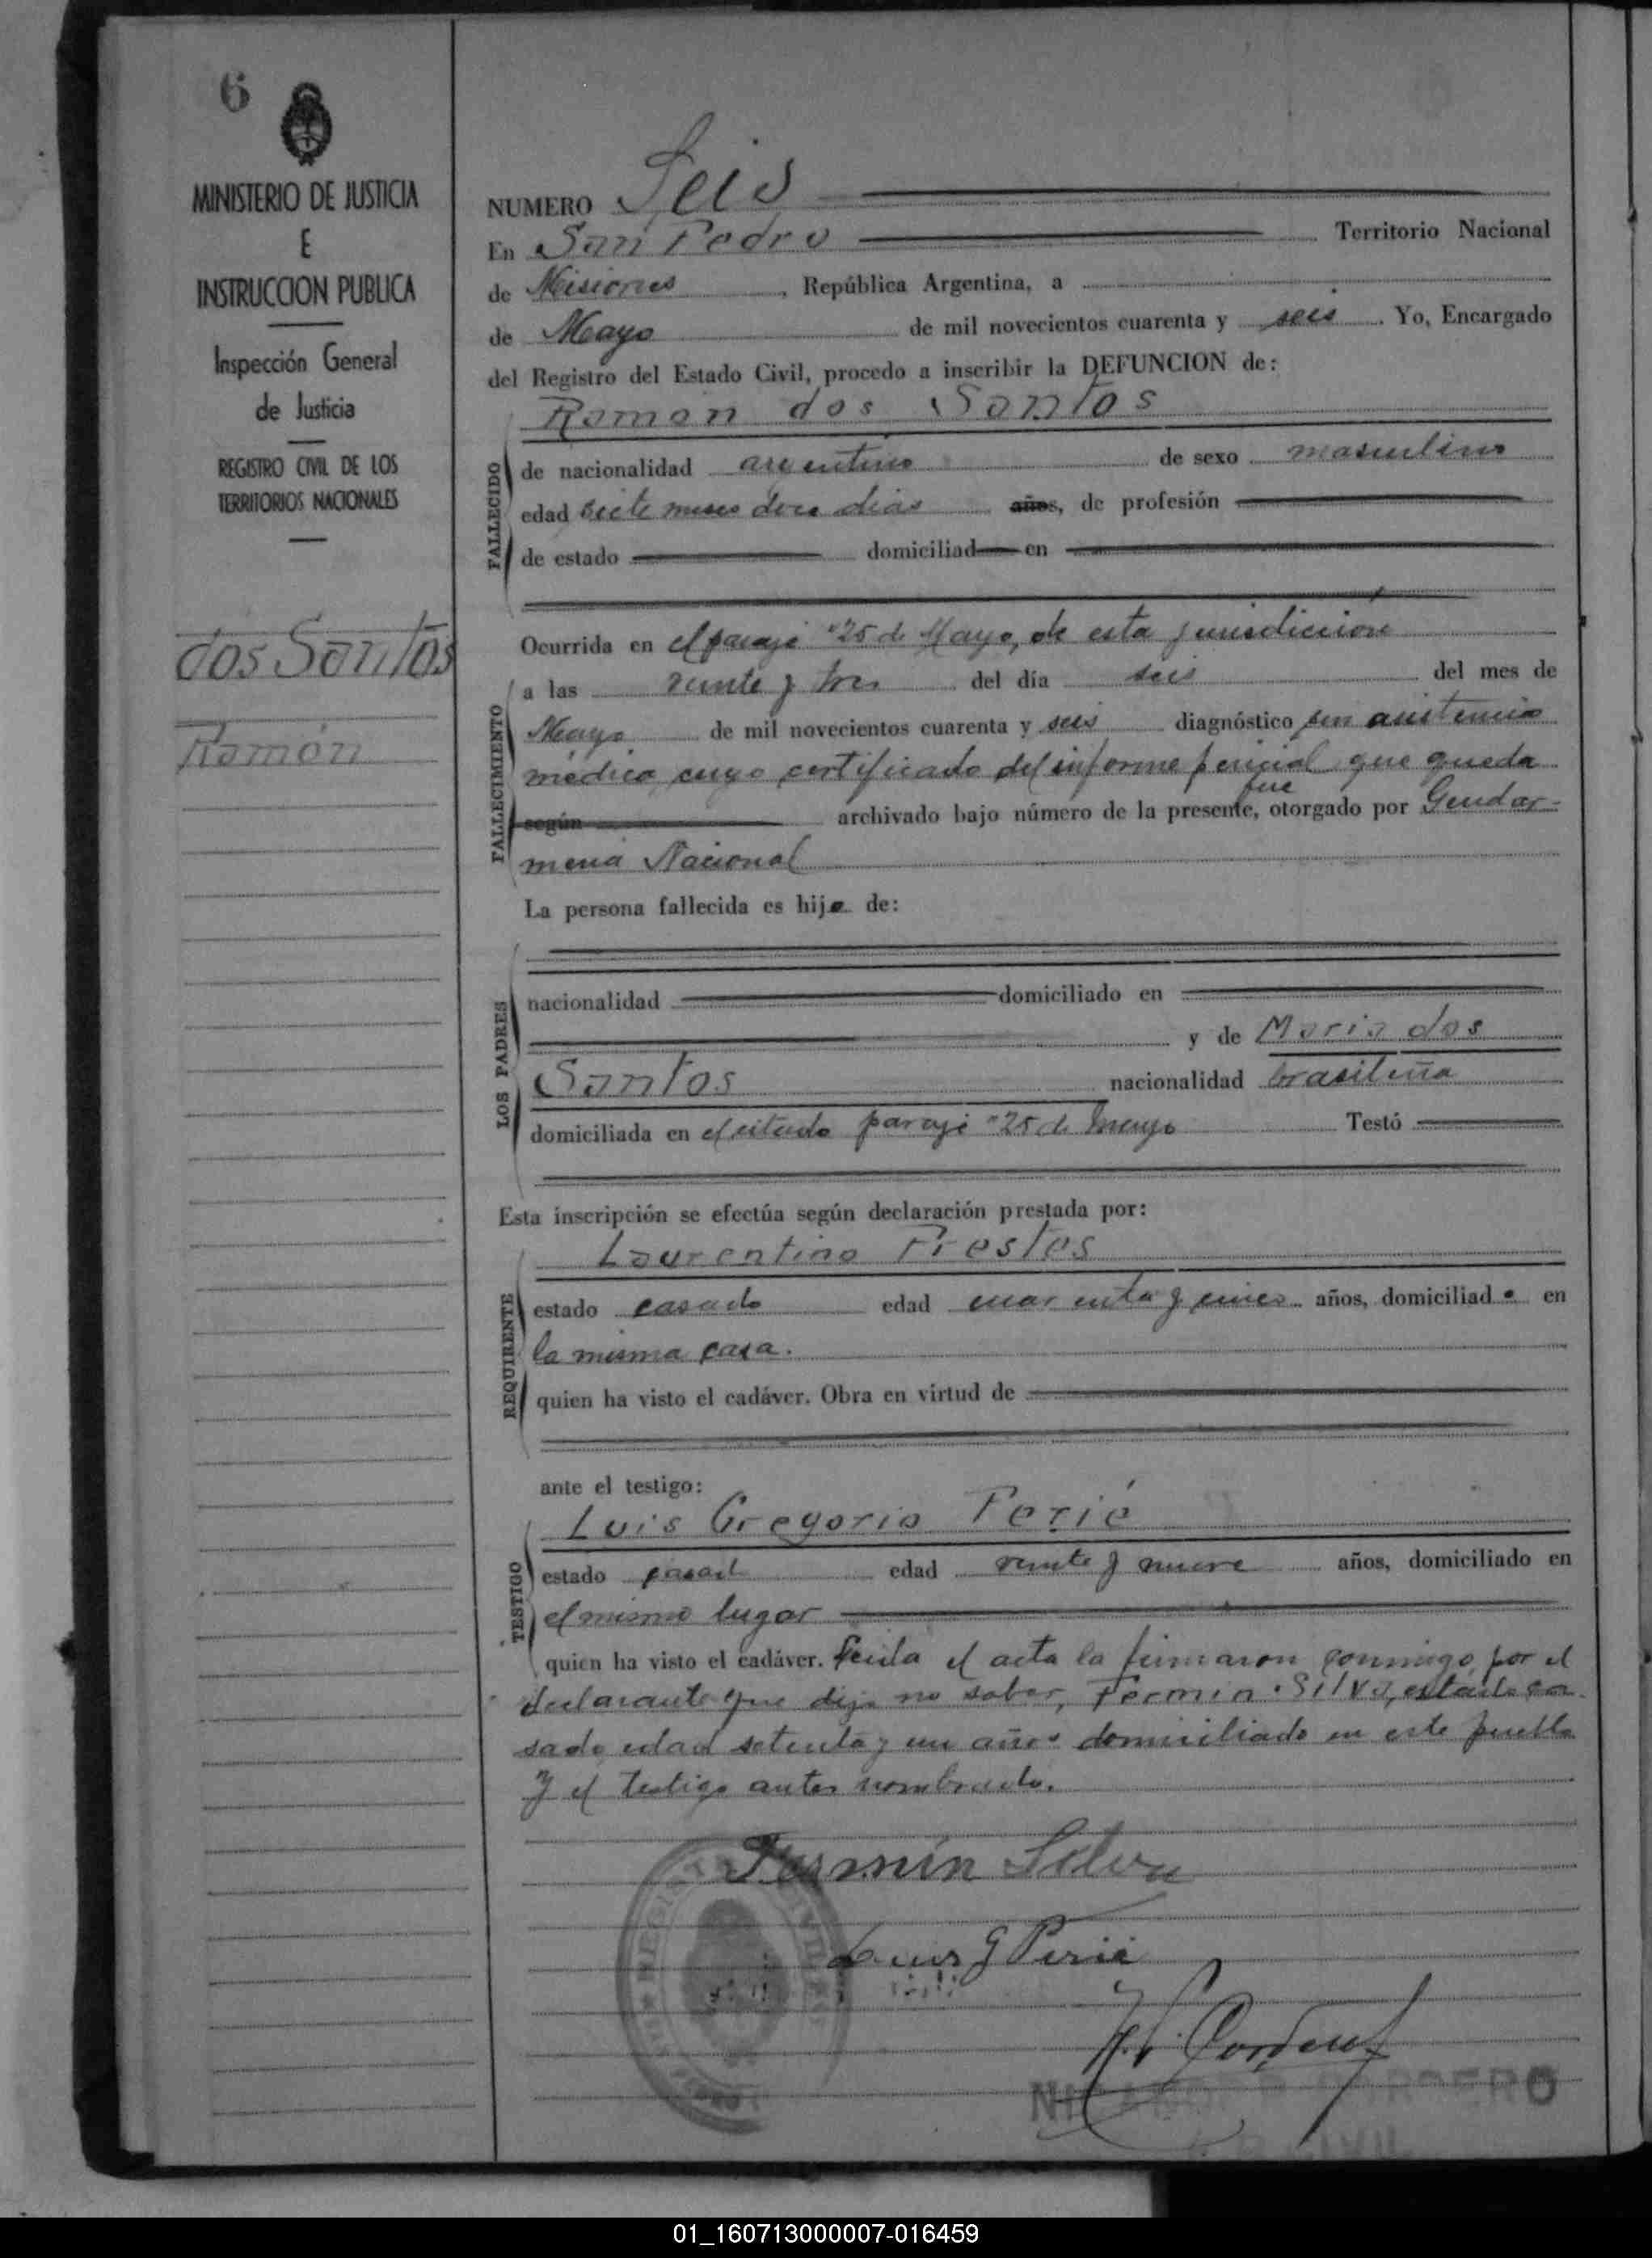 6
MINISTERIO DE JUSTICIA
E
INSTRUCCION PUBLICA
Inspección General
de Justicia
REGISTRO CIVIL DE LOS
TERRITORIOS NACIONALES
dos Santos
Ramón
NUMERO Seis
En San Pedro Territorio Nacional
de Misiones, República Argentina, a
de Mayo de mil novecientos cuarenta y seis. Yo, Encargado
del Registro del Estado Civil, procedo a inscribir la DEFUNCION de:
Ramon dos Santos
FALLECIDO
de nacionalidad argentino de sexo masculino
edad siete meses doce dias años, de profesión
de estado domiciliad en
Ocurrida en el paraje "25 de Mayo, de esta jurisdicción
FALLECIMIENTO
a las veinte y tres del día seis del mes de
Mayo de mil novecientos cuarenta y seis diagnóstico sin asistencia
médica, cuyo certificado del informe pericial que queda
fue
según archivado bajo número de la presente, otorgado por Gendar-
meria Nacional
La persona fallecida es hijo de:
LOS PADRES
nacionalidad domiciliado en
y de Maria dos
Santos nacionalidad brasileña
domiciliada en el citado paraje "25 de Mayo Testó
Esta inscripción se efectúa según declaración prestada por:
Laurentino Prestes
REQUIRENTE
estado casado edad cuarenta y cinco años, domiciliado en
la misma casa.
quien ha visto el cadáver. Obra en virtud de
ante el testigo:
Luis Gregorio Perié
TESTIGO
estado casado edad veinte y nueve años, domiciliado en
el mismo lugar
quien ha visto el cadáver. Leida el acta la firmaron conmigo, por el
declarante que dijo no saber, Fermin Silva, estado ca
sado edad setenta y un años domiciliado en este pueblo
y el testigo antes nombrado.
Fermín Silva
Luis G Perié
01_160713000007-016459